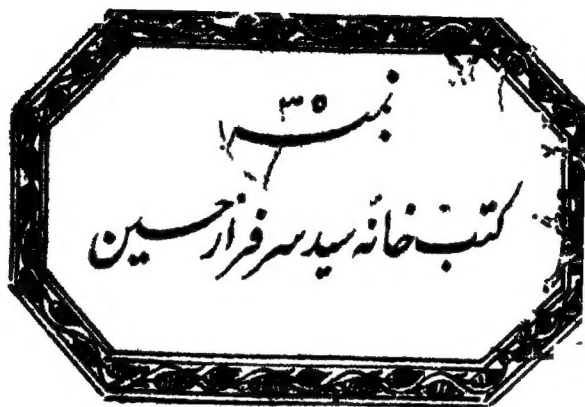 نمبر ۳۵
کتب خانہ سید سرفراز حسین